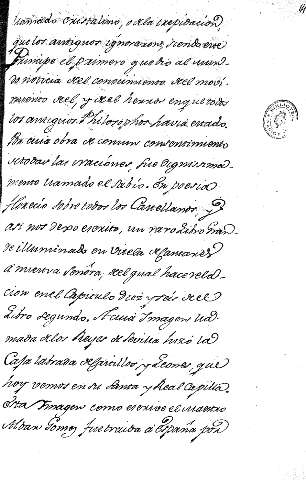 llamado cristalino, o de la trepidacion,
que los antiguos ignoraron, siendo este
Principe el primero que dio al mun-
do noticia del conocimiento del movi-
miento del, y del herror en que todos
los antiguos Philosophos havia errado.
Por cuia obra de comun consentimiento
de todas las naciones, fue dignissima-
mente llamado el sabio. En poesia
florecio sobre todos los Castellanos, y
asi nos dexo escrito, un raro Libro Gran-
de illuminado en vitela de Cantares
a nuestra Señora, del qual hace rela-
cion en el Capitulo diez y seis del
Libro segundo. A cuia Imagen lla-
mada de los Reyes de Sevilla hizo la
Caja labrada de Castillos, y Leones, que
hoy vemos en su Santa y Real Capilla.
Esta Imagen como escrive el Maestro
Alvar Gomez fue traida a España por